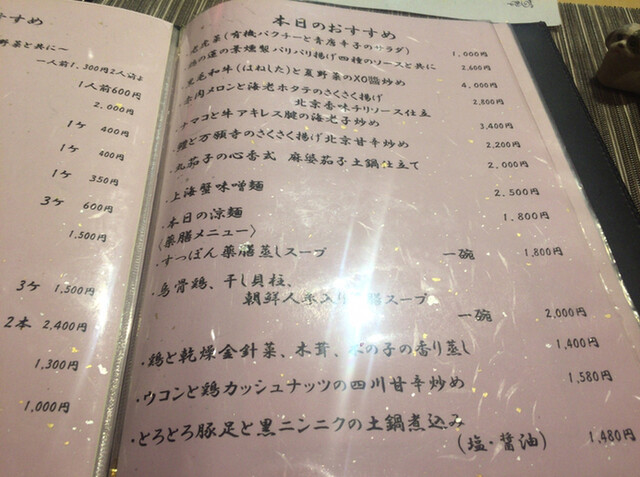 すすめ
野菜と共に～
一人前1,300円2人前よ
1人前600円
2,000円
1ケ 400円
1ケ 400円
1ケ 350円
3ケ 600円
1,500円
3ケ 1,500円
2本 2,400円
1,300円
1,000円
本日のおすすめ
虎菜(有機パクチーと青唐辛子のサラダ) 1,000円
の蓮の葉燻製パリパリ揚げ四種のソースと共に 2,600円
黒毛和牛(はねした)と夏野菜のXO醬炒め 4,000円
肉メロンと海老ホタテのさくさく揚げ
北京香味チリソース仕立 2,800円
ナマコと牛アキレス腱の海老子炒め 3,400円
・鱧と万願寺のさくさく揚げ北京甘辛炒め 2,200円
・丸茄子の心香式 麻婆茄子土鍋仕立て 2,000円
・上海蟹味噌麺 2,500円
・本日の涼麺 1,800円
〈薬膳メニュー〉
・すっぽん薬膳蒸しスープ 一碗 1,800円
・烏骨鶏、干し貝柱、
朝鮮人参入り 膳スープ
一碗 2,000円
・鶏と乾燥金針菜、木茸、 の子の香り蒸し 1,400円
・ウコンと鶏カッシュナッツの四川甘辛炒め 1,580円
・とろとろ豚足と黒ニンニクの土鍋煮込み
(塩・醤油) 1,480円